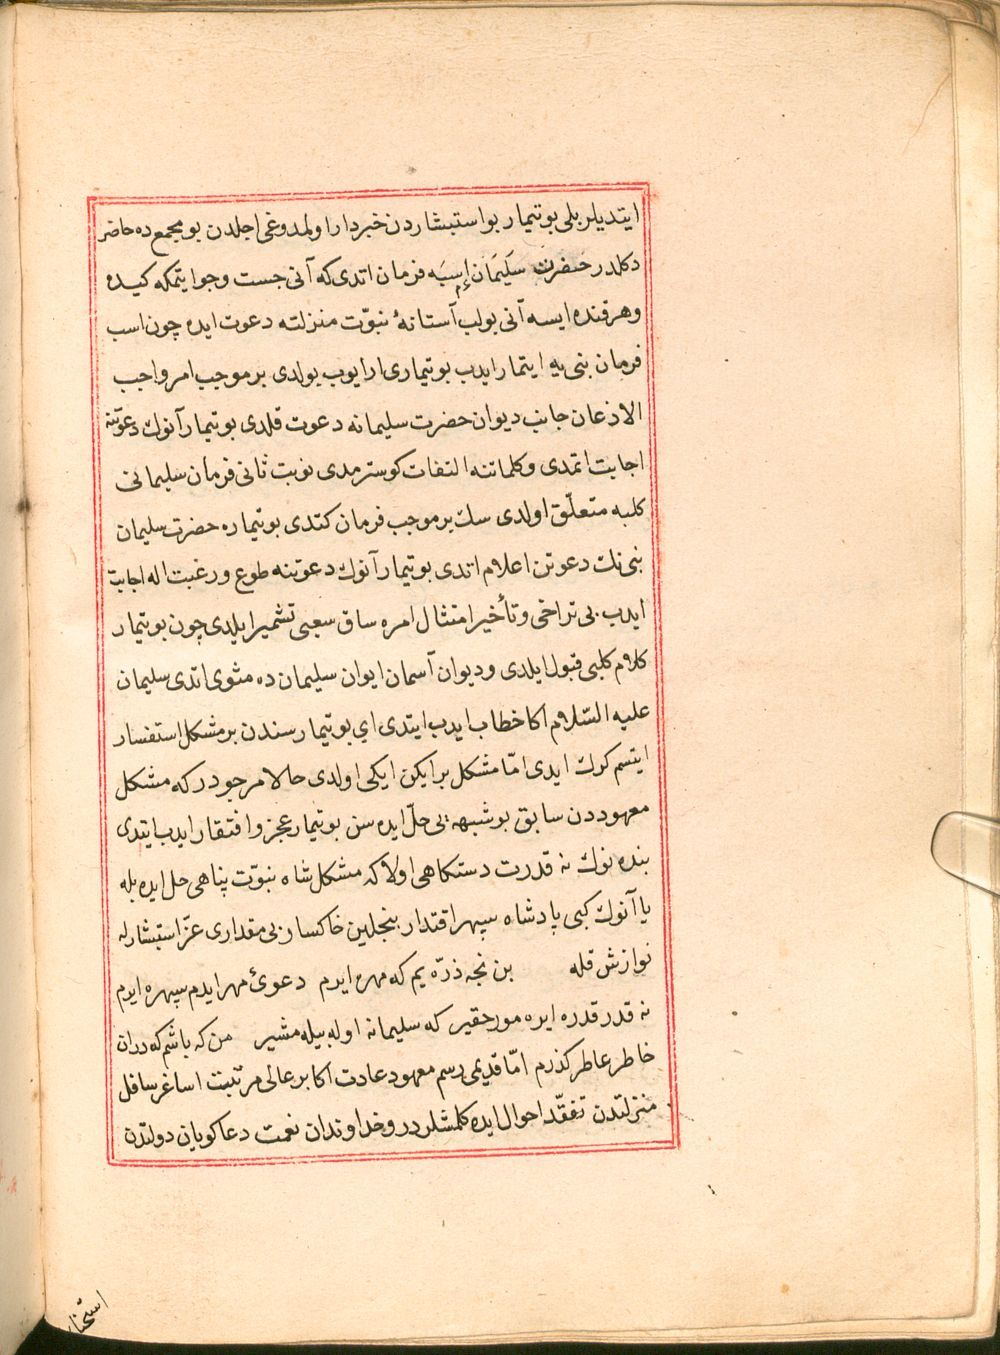 ایتدیلر بلی بوتیمار بو استبشاردن خبردار اولمدوغی اجلدن بو مجمع ده حاضر
دکلدر حضرت سلیمان اسبه فرمان اتدی که آنی جست وجو ایتمکه کیده
وهر قنده ایسه آنی بولب آستانهٔ نبوّت منزلته دعوت ایده چون اسب
فرمان بنی یه ایتمار ایدب بوتیماری ارایوب بولدی بر موجب امر واجب
الاذعان جانب دیوان حضرت سلیمانه دعوت قلدی بوتیمار آنوك دعوتنه
اجابت اتمدی وکلماتنه التفات کوسترمدی نوبت ثانی فرمان سلیمانی
کلبه متعلّق اولدی سك بر موجب فرمان کتدی بوتیماره حضرت سلیمان
بنی نك دعوتن اعلام اتدی بوتیمار آنوك دعوتنه طوع ورغبت اله اجابت
ایدب بی تراخی وتأخیر امتثال امره ساق سعیی تشمیر ایلدی چون بوتیمار
کلام کلبی قبول ایلدی ودیوان آسمان ایوان سلیمان ده مثوی اتدی سلیمان
علیه السّلام اکا خطاب ایدب ایتدی ای بوتیمار سندن بر مشکل استفسار
ایتسم کرك ایدی امّا مشکل بر ایکن ایکی اولدی حالا مرجودر که مشکل
معهوددن سابق بو شبهه یی حلّ ایده سن بوتیمار عجز وافتقار ایدب ایتدی
بنده نوك نه قدرت دستکاهی اولا که مشکل شاه نبوّت پناهی حل ایده بله
یا آنوك کبی پادشاه سپهر اقتدار بنجلین خاکسار بی مقداری عزّ استبشار له
نوازش قله بن نجه ذرّه یم که مهره ایرم دعوئ مهر ایدم سپهره ایرم
نه قدر قدره ایره مور حقیر که سلیمانه اوله بیله مشیر من که باشم که دران
خاطر عاطر کذرم امّا قدیمی رسم معهود عادت اکابر عالی مرتبت اساغر سافل
منزلتدن تفقّد احوال ایده کلمشلردر وخداوندان نعمت دعا کویان دولتدن